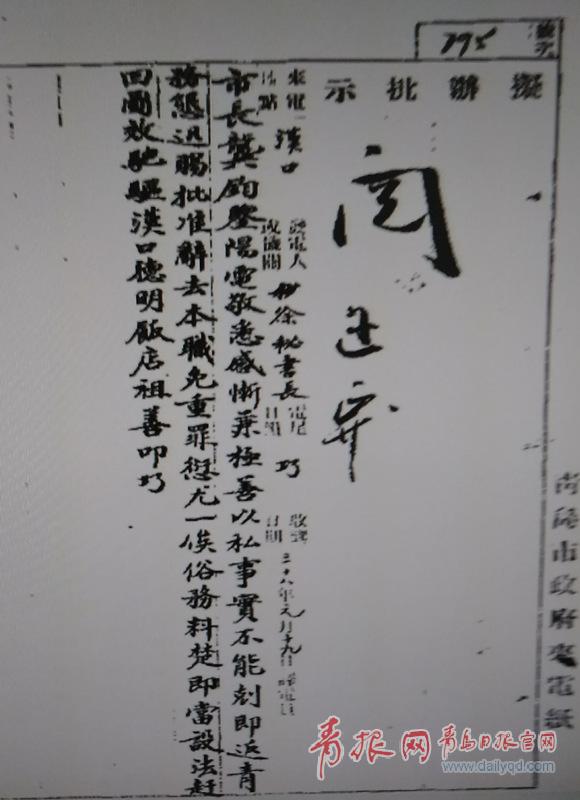 號次
395
擬辦批示
閱
來電地點
漢口
發電人或機關
徐秘書長
電尾日韻
巧
收電日期
三十八年元月十九日
市長龔鈞鑒陽電敬悉感慚萊極善以私事實不能刻即返青
務懇迅賜批准辭去本職免重罪愆尤一俟俗務料楚即當設法赶
回圖效馳驅漢口德明飯店祖善叩巧
青島市政府來電紙
青报网
青岛日报官网
www.dailyqd.com